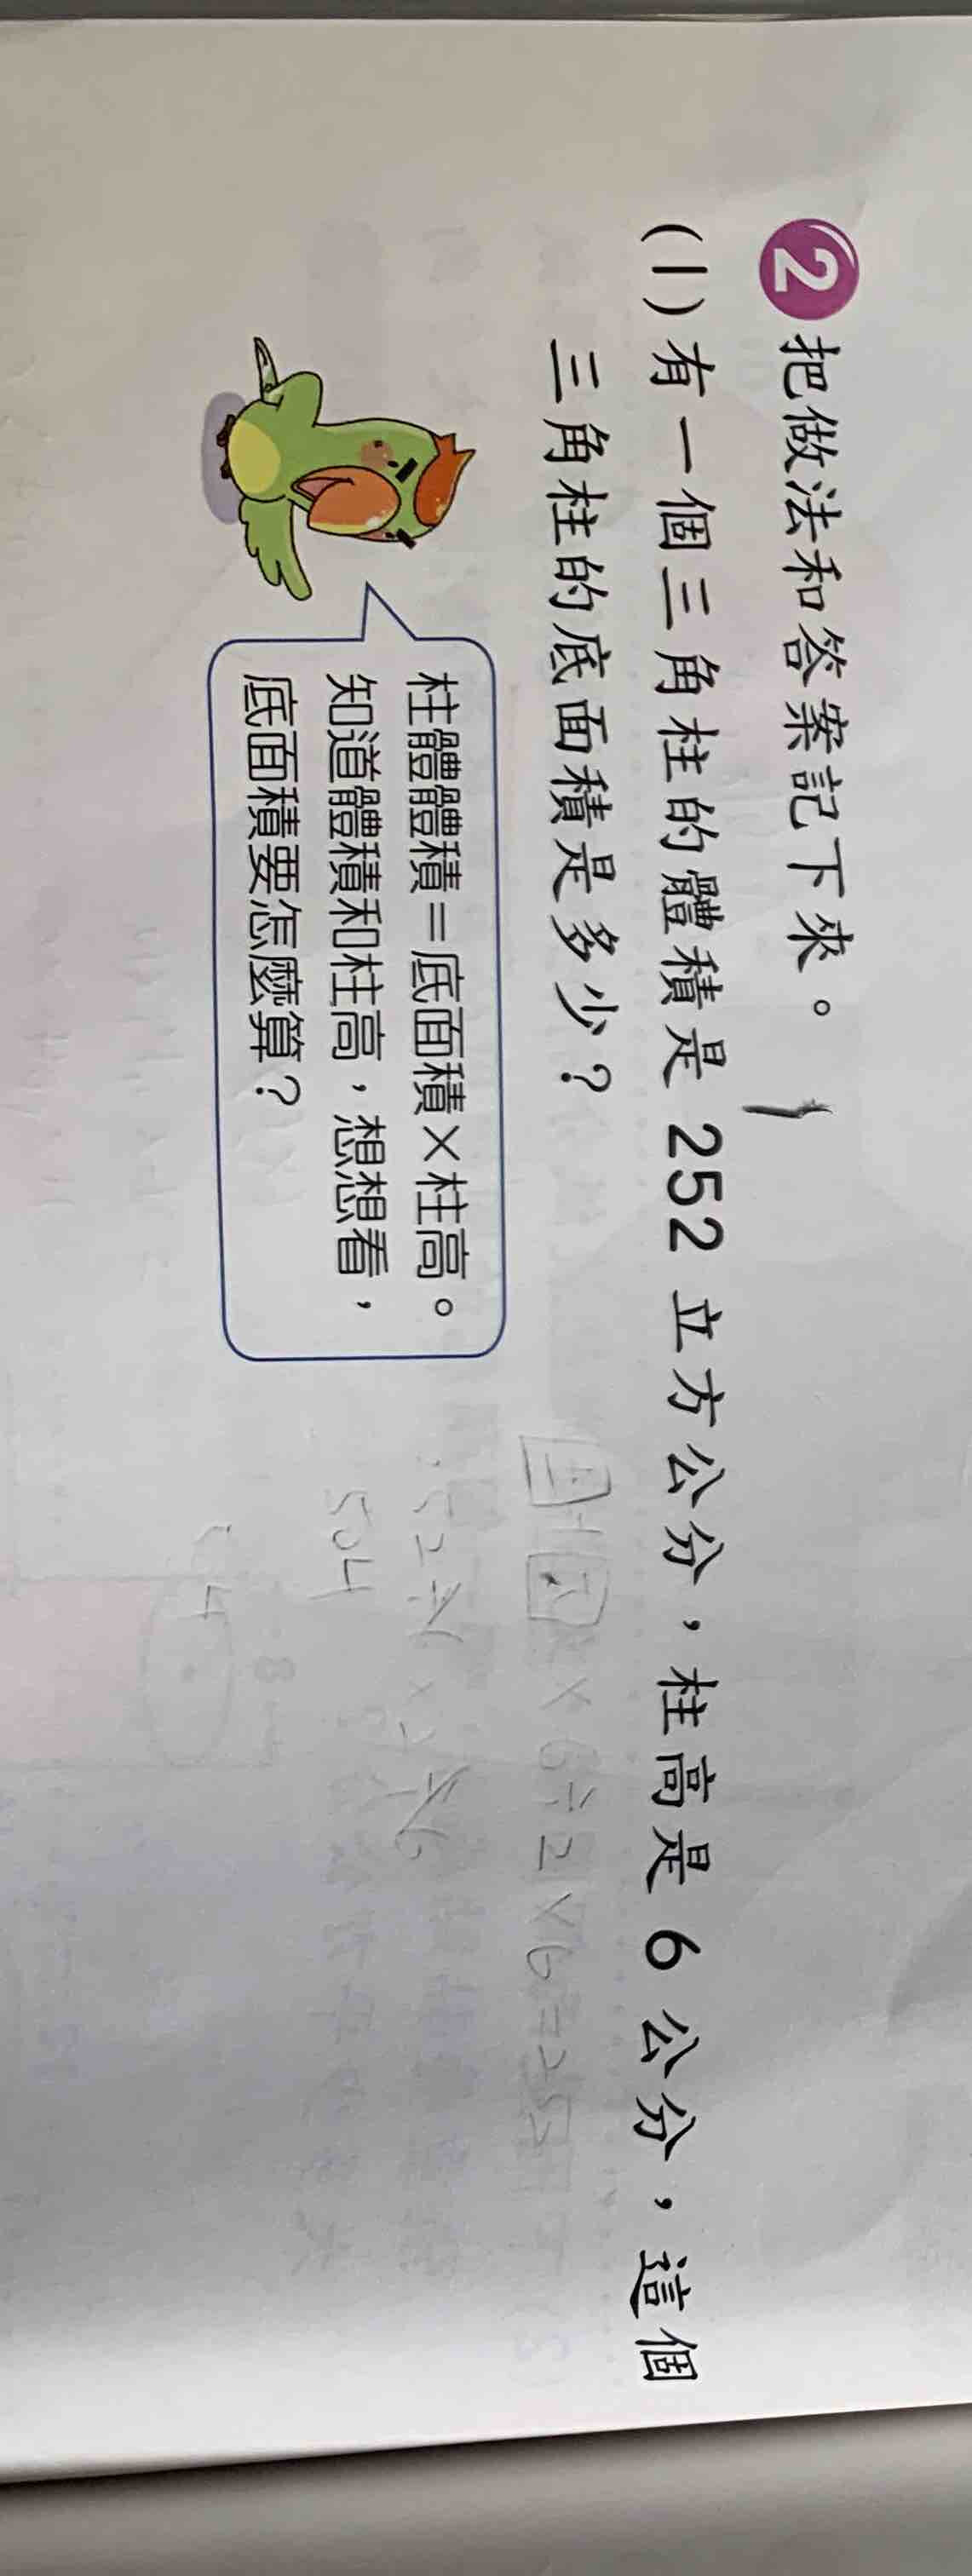 2 把做法和答案記下來。
(1) 有一個三角柱的體積是 252 立方公分，柱高是 6 公分，這個
三角柱的底面積是多少？
柱體體積＝底面積×柱高。
知道體積和柱高，想想看，
底面積要怎麼算？
504